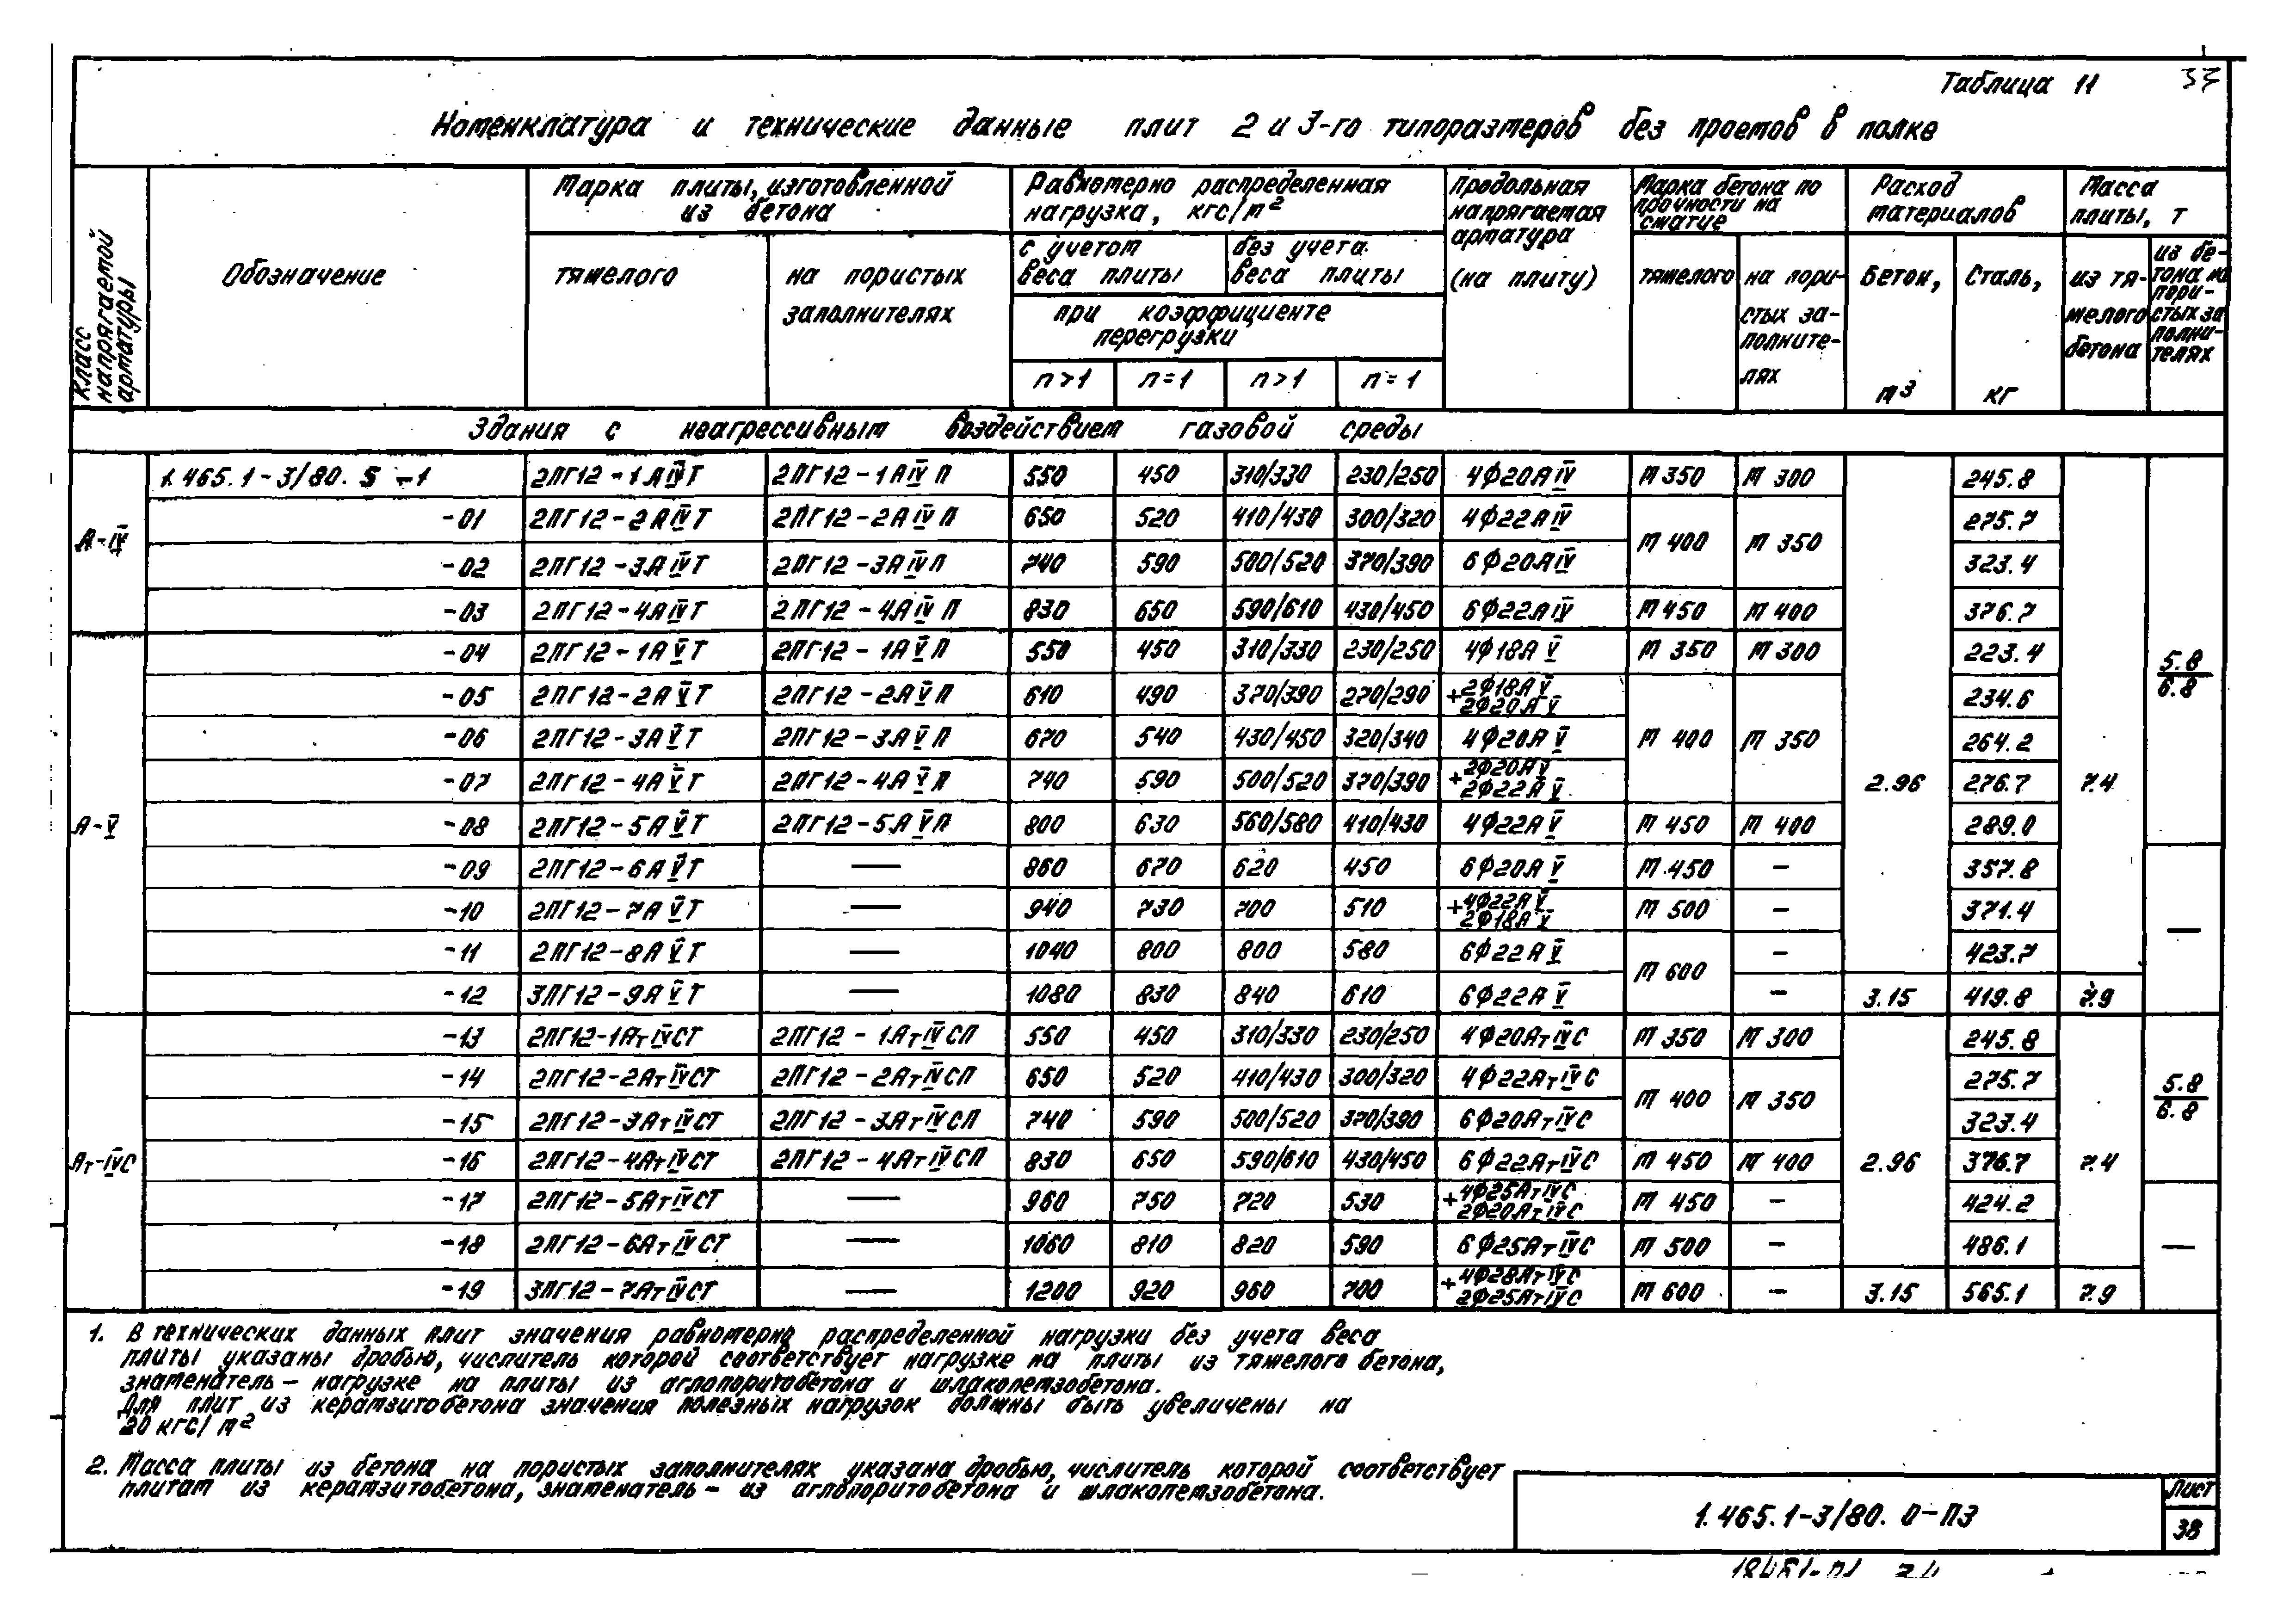 Таблица 11 37
Номенклатура и технические данные плит 2 и 3-го типоразмеров без проемов в полке
Класс напрягаемой арматуры
Обозначение
Марка плиты, изготовленной из бетона
тяжелого
на пористых заполнителях
Равномерно распределенная нагрузка, кгс/м²
с учетом веса плиты
без учета веса плиты
при коэффициенте перегрузки
n>1 n=1 n>1 n=1
Продольная напрягаемая арматура (на плиту)
Марка бетона по прочности на сжатие
тяжелого
на пористых заполнителях
Расход материалов
Бетон, м3
Сталь, кг
Масса плиты, т
из тяжелого бетона
из бетона на пористых заполнителях
Здания с неагрессивным воздействием газовой среды
А-IV
1.465.1-3/80. 5 -1 2ПГ12-1АIVТ 2ПГ12-1АIVП 550 450 310/330 230/250 4Ф20АIV М350 М300 245.8
-01 2ПГ12-2АIVТ 2ПГ12-2АIVП 650 520 410/430 300/320 4Ф22АIV М400 М350 275.7
-02 2ПГ12-3АIVТ 2ПГ12-3АIVП 740 590 500/520 370/390 6Ф20АIV 323.4
-03 2ПГ12-4АIVТ 2ПГ12-4АIVП 830 650 590/610 430/450 6Ф22АIV М450 М400 376.7
А-V
-04 2ПГ12-1АVТ 2ПГ12-1АVП 550 450 310/330 230/250 4Ф18АV М350 М300 223.4 5.8/6.8
-05 2ПГ12-2АVТ 2ПГ12-2АVП 610 490 370/390 270/290 2Ф18АV+2Ф20АV 234.6
-06 2ПГ12-3АVТ 2ПГ12-3АVП 670 540 430/450 320/340 4Ф20АV М400 М350 264.2
-07 2ПГ12-4АVТ 2ПГ12-4АVП 740 590 500/520 370/390 2Ф20АV+2Ф22АV 2.96 276.7 7.4
-08 2ПГ12-5АVТ 2ПГ12-5АVП 800 630 560/580 410/430 4Ф22АV М450 М400 289.0
-09 2ПГ12-6АVТ — 860 670 620 450 6Ф20АV М450 - 357.8
-10 2ПГ12-7АVТ — 940 730 700 510 4Ф22АV+2Ф18АV М500 - 371.4
-11 2ПГ12-8АVТ — 1040 800 800 580 6Ф22АV М600 - 423.7 —
-12 3ПГ12-9АVТ — 1080 830 840 610 6Ф22АV - 3.15 419.8 7.9
Ат-IVС
-13 2ПГ12-1АтIVСТ 2ПГ12-1АтIVСП 550 450 310/330 230/250 4Ф20АтIVС М350 М300 245.8
-14 2ПГ12-2АтIVСТ 2ПГ12-2АтIVСП 650 520 410/430 300/320 4Ф22АтIVС М400 М350 275.7 5.8/6.8
-15 2ПГ12-3АтIVСТ 2ПГ12-3АтIVСП 740 590 500/520 370/390 6Ф20АтIVС 323.4
-16 2ПГ12-4АтIVСТ 2ПГ12-4АтIVСП 830 650 590/610 430/450 6Ф22АтIVС М450 М400 2.96 376.7 7.4
-17 2ПГ12-5АтIVСТ — 960 750 720 530 4Ф25АтIVС+2Ф20АтIVС М450 - 424.2
-18 2ПГ12-6АтIVСТ — 1060 810 820 590 6Ф25АтIVС М500 - 486.1 —
-19 3ПГ12-7АтIVСТ — 1200 920 960 700 4Ф28АтIVС+2Ф25АтIVС М600 - 3.15 565.1 7.9
1. В технических данных плит значения равномерно распределенной нагрузки без учета веса
плиты указаны дробью, числитель которой соответствует нагрузке на плиты из тяжелого бетона,
знаменатель – нагрузке на плиты из аглопоритобетона и шлакопемзобетона.
Для плит из керамзитобетона значения полезных нагрузок должны быть увеличены на
20 кгс/м²
2. Масса плиты из бетона на пористых заполнителях указана дробью, числитель которой соответствует
плитам из керамзитобетона, знаменатель – из аглопоритобетона и шлакопемзобетона.
1.465.1-3/80. 0-ПЗ
Лист
38